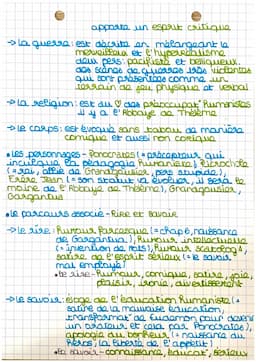 apporte un esprit critique
→ la guerre : est décrite en mélangeant le
merveilleux et l'hyperréalisme
deux pers: pacifiste et belliqueux
des scènes de guerres très violentes
qui sont présentées comme un
terrain de jeu physique et verbal
→ la religion : est au ♡ des préoccupat° Humanistes
il y a l'Abbaye de Thélème
→ le corps : est évoqué sans tabou de manière
comique et aussi non comique
• les personnages - Ponocrates (= précepteur qui
inculque la pédagogie humaniste), Picrochole
(= roi, allié de Grandgousier, pers stupide),
Frère Jean (= son statut va évoluer, il sera le
moine de l'Abbaye de Thélème), Grandgousier,
Gargantua
• le parcours associé - Rire et Savoir
→ le rire : Humour Farcesque (= chap 6, naissance
de Gargantua), Humour intellectuelle
(= invention de mots), Humour scatolog
satire de l'esprit sérieux (= le savoir
mal employé)
• le rire - humour, comique, satire, joie,
plaisir, ironie, divertissement
→ le savoir : éloge de l'éducation Humaniste (=
satire de la mauvaise éducation,
transformat° de Eudemon pour devenir
un orateur et cela par Ponocrates),
apologie du bonheur (= naissance du
héros, la liberté de l'appétit)
• le savoir - connaissance, éducat°, sérieux